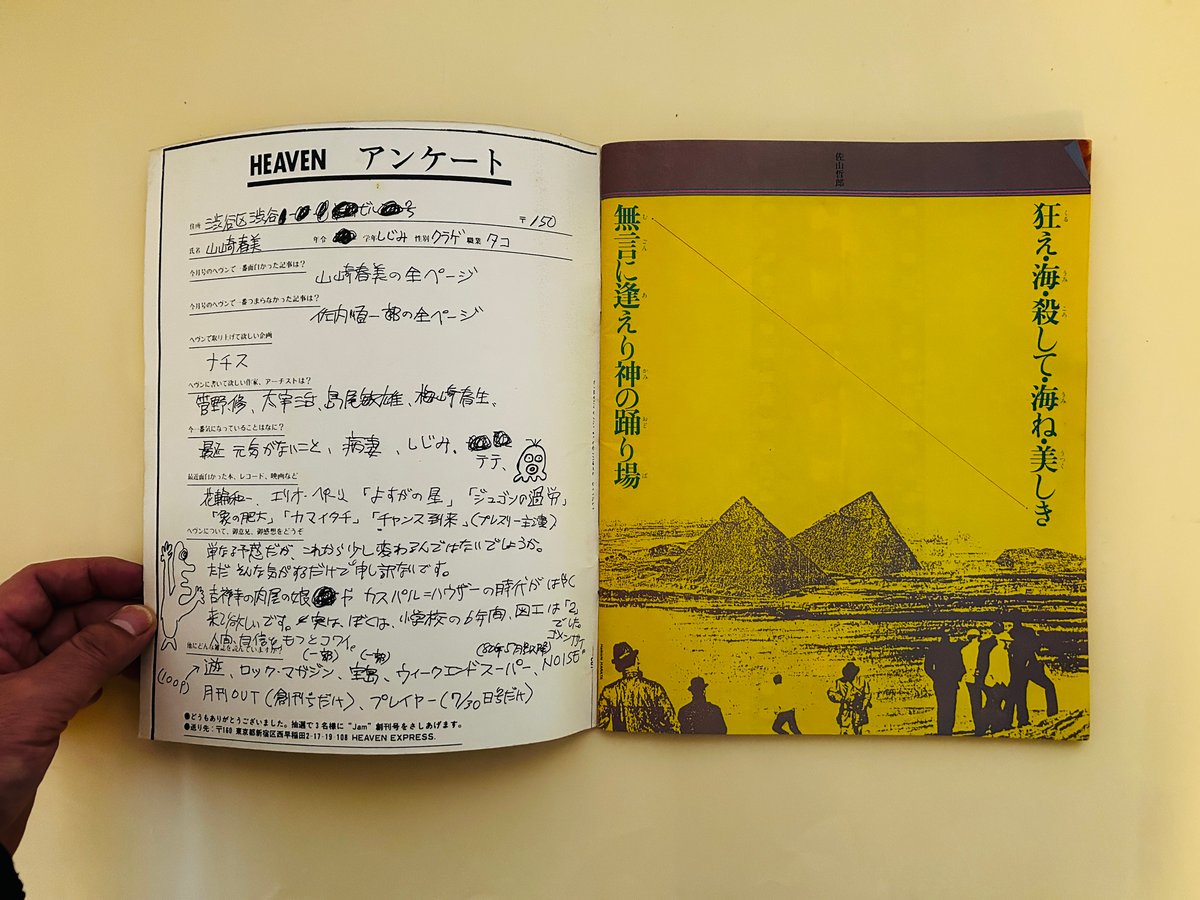 HEAVEN アンケート
住所 渋谷区渋谷 ビル 号 〒150
氏名 山崎春美 年令 学年 しじみ 性別 クラゲ 職業 タコ
今月号のヘヴンで一番面白かった記事は?
山崎春美の全ページ
今月号のヘヴンで一番つまらなかった記事は?
佐内順一郎の全ページ
ヘヴンで取り上げて欲しい企画
ナチス
ヘヴンに書いて欲しい作家、アーチストは?
菅野修、太宰治、島尾敏雄、梅崎春生、
今一番気になっていることはなに?
最近元気がないこと、病妻、しじみ、
テテ、
最近面白かった本、レコード、映画など
花輪和一、エリオ・ペトリ「よすがの星」「ジュゴンの過労」
「象の肥大」「カマイタチ」「チャンス到来」(プレスリー主演)
ヘヴンについて、御意見、御感想をどうぞ
単なる予感だが、これから少し変わるんではないでしょうか。
ただそんな気がするだけで申し訳ないです。
吉祥寺の肉屋の娘 や カスパル=ハウザーの時代がはやく
来て欲しいです。実は、ぼくは、小学校の6年間、図工は「2」
でした。
ゴメンナサイ
人間、自信をもつとコワイ。
他にどんな雑誌を読んでいますか?
(一部) (一部) (80年5月号以降)
(100P) 遊、ロック・マガジン、宝島、ウィークエンドスーパー、NOISE。
月刊OUT(創刊号だけ)、プレイヤー(7/30日号だけ)
●どうもありがとうございました。抽選で3名様に“Jam”創刊号をさしあげます。
●送り先:〒160 東京都新宿区西早稲田2-17-19-108 HEAVEN EXPRESS.
佐山哲郎
狂え・海・殺して・海ね・美しき
無言に逢えり神の踊り場